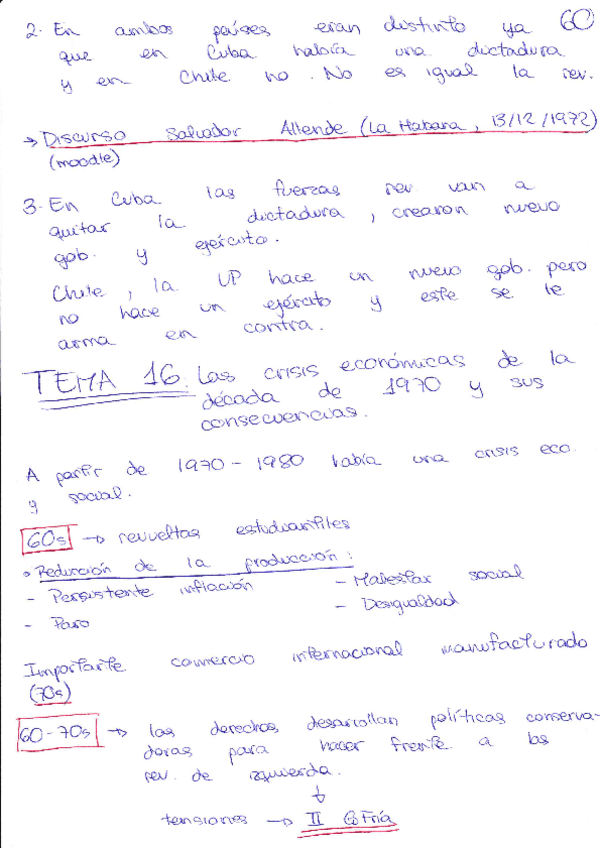 60
2. En ambos países eran distinto ya
que en Cuba había una dictadura
y en Chile no. No es igual la rev.
→ Discurso Salvador Allende (La Habana, 13/12/1972)
(moodle)
3. En Cuba las fuerzas rev van a
quitar la dictadura, crearon nuevo
gob. y ejército.
Chile, la UP hace un nuevo gob. pero
no hace un ejército y este se le
arma en contra.
TEMA 16. Las crisis económicas de la
década de 1970 y sus
consecuencias.
A partir de 1970 - 1980 había una crisis eco.
y social.
60s → revueltas estudiantiles
• Reducción de la producción:
- Persistente inflación
- Paro
- Malestar social
- Desigualdad
Importante comercio internacional manufacturado
(70s)
60-70s → las derechas desarrollan políticas conserva-
doras para hacer frente a las
rev. de izquierda.
↓
tensiones → II G Fría